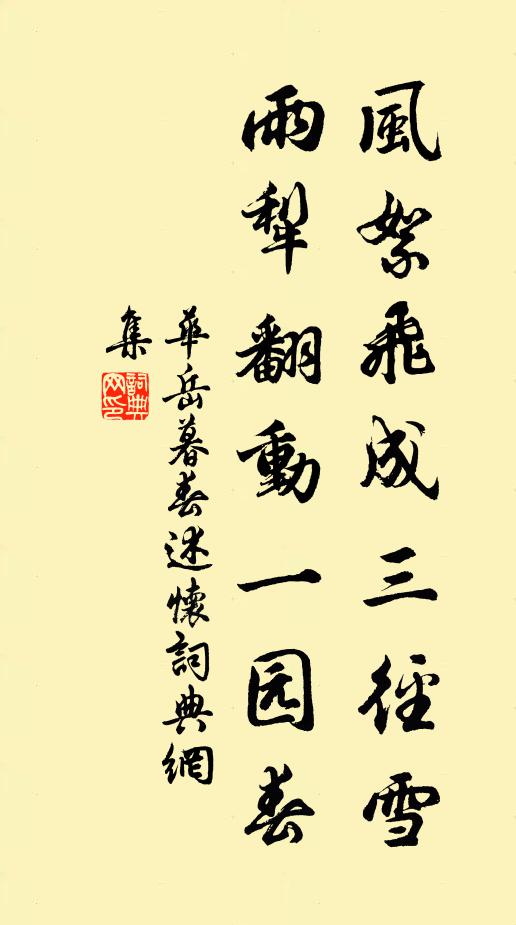 風絮飛成三徑雪
雨犁翻動一园春
華岳暮春述懷詞典網
集
詞典
网印